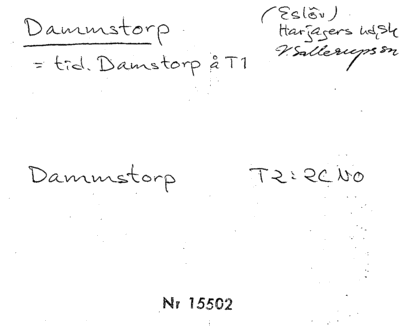 Dammstorp
(Eslöv)
Harjagers hd, Sk
V. Sallerups sn
= tid. Damstorp å T1
Dammstorp T2: 2C NO
Nr 15502